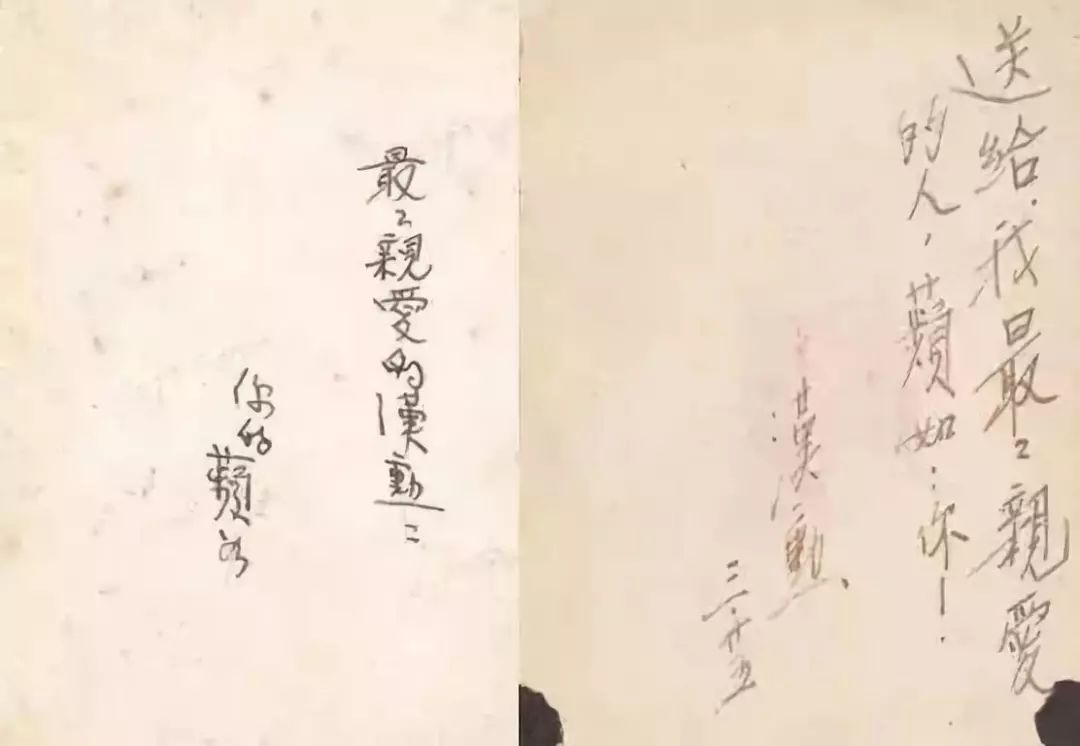 最々親愛的漢勳：
你的蘋如
送给我最々親愛
的人，蘋如：你！
漢勳
三·廿五